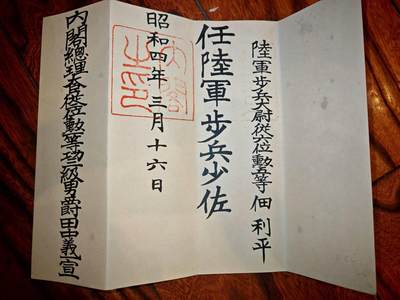 陸軍步兵大尉從六位勲五等 佃 利平
任陸軍步兵少佐
昭和四年三月十六日
內閣之印
內閣總理大臣從二位勲一等功三級男爵田中義一宣